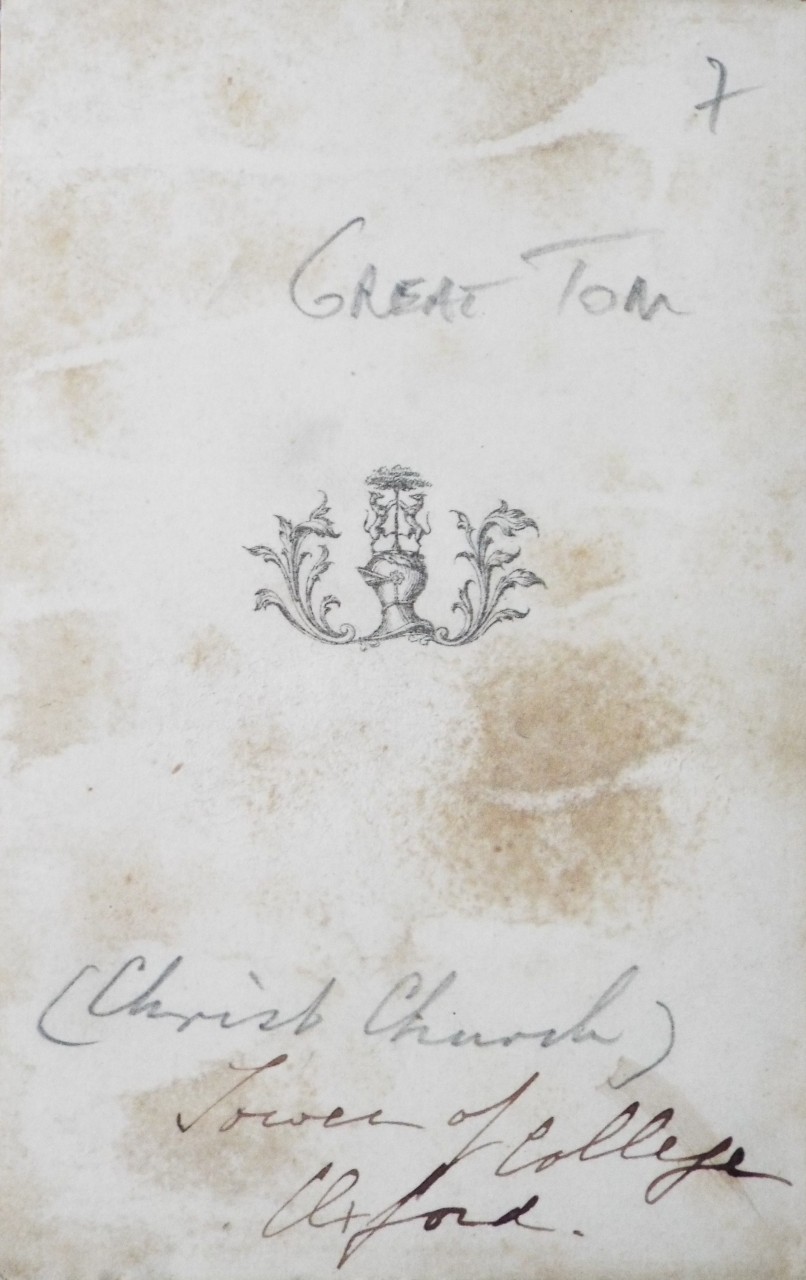 7
GREAT TOM
(Christ Church)
Tower of College
Oxford.